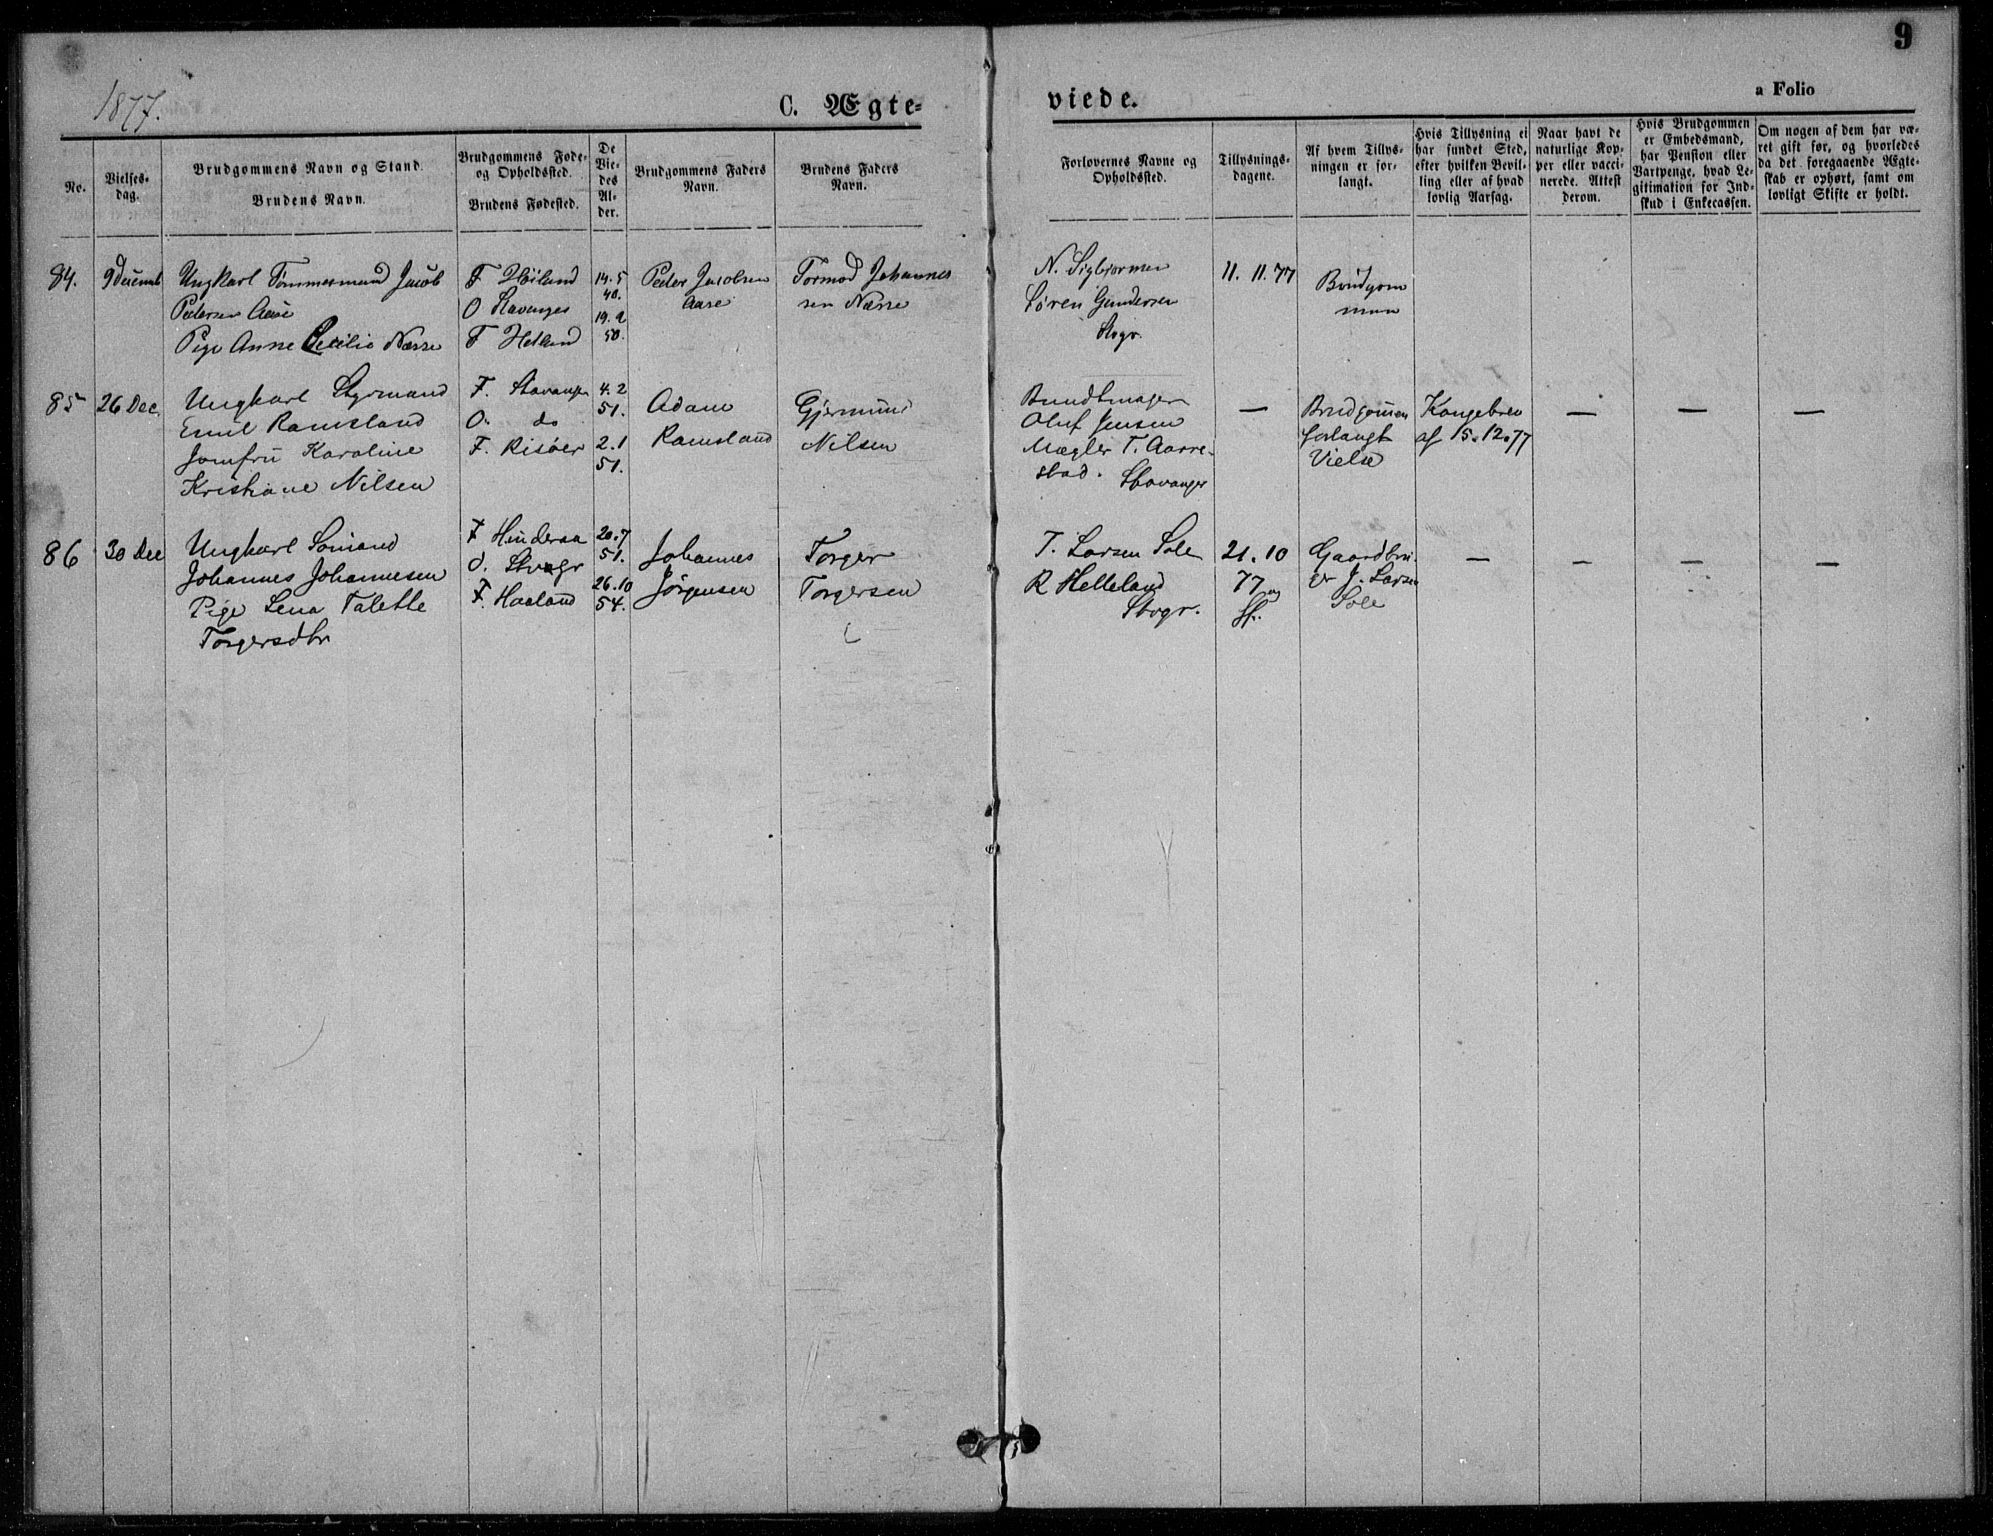 9
1877.
C. Ægte=
viede.
a Folio
No.
Vielses-
dag.
Brudgommens Navn og Stand.
Brudens Navn.
Brudgommens Føde-
og Opholdssted.
Brudens Fødested.
De
Vie-
des
Al-
der.
Brudgommens Faders
Navn.
Brudens Faders
Navn.
Forlovernes Navne og
Opholdssted.
Tillysnings-
dagene.
Af hvem Tillys-
ningen er for-
langt.
Hvis Tillysning ei
har fundet Sted,
efter hvilken Bevil-
ling eller af hvad
lovlig Aarsag.
Naar havt de
naturlige Kop-
per eller vacci-
nerede. Attest
derom.
Hvis Brudgommen
er Embedsmand,
har Pension eller
Vartpenge, hvad Le-
gitimation for Ind-
skud i Enkecassen.
Om nogen af dem har væ-
ret gift før, og hvorledes
da det foregaaende Ægte-
skab er ophørt, samt om
lovligt Skifte er holdt.
84.
9 Decemb
Ungkarl Tømmermand Jacob
Pedersen Aase
Pige Anne Cecilie Næsse
F Høiland
O Stavanger
F Hetland
14. 5
40.
19. 2
50.
Peder Jacobsen
Aase
Tormod Johannes
sen Næsse
N. Sigbjørnsen
Søren Gundersen
Stvgr.
11. 11. 77
Brudgom
men
85
26 Dec.
Ungkarl Styrmand
Emil Ramsland
Jomfru Karoline
Kristiane Nilsen
F. Stavanger
O. do
F. Risøer
4. 2
51.
2. 1
51.
Adam
Ramsland
Gjermund
Nilsen
Bundtmager
Oluf Jensen
Mægler T. Aarre-
stad. Stavanger
—
Brudgommen
forlangt
Vielse
Kongebrev
af 15. 12. 77
—
—
—
86
30 Dec
Ungkarl Sømand
Johannes Johannesen
Pige Lena Talette
Torgersdtr
F Hinderaa
O. Stvgr
F. Haaland
20. 7
51.
26. 10
54.
Johannes
Jørgensen
Torger
Torgersen
T. Larsen Sole
R Helleland
Stvgr.
21. 10
77 og
ff.
Gaardbru-
ger J. Larsen
Sole
—
—
—
—